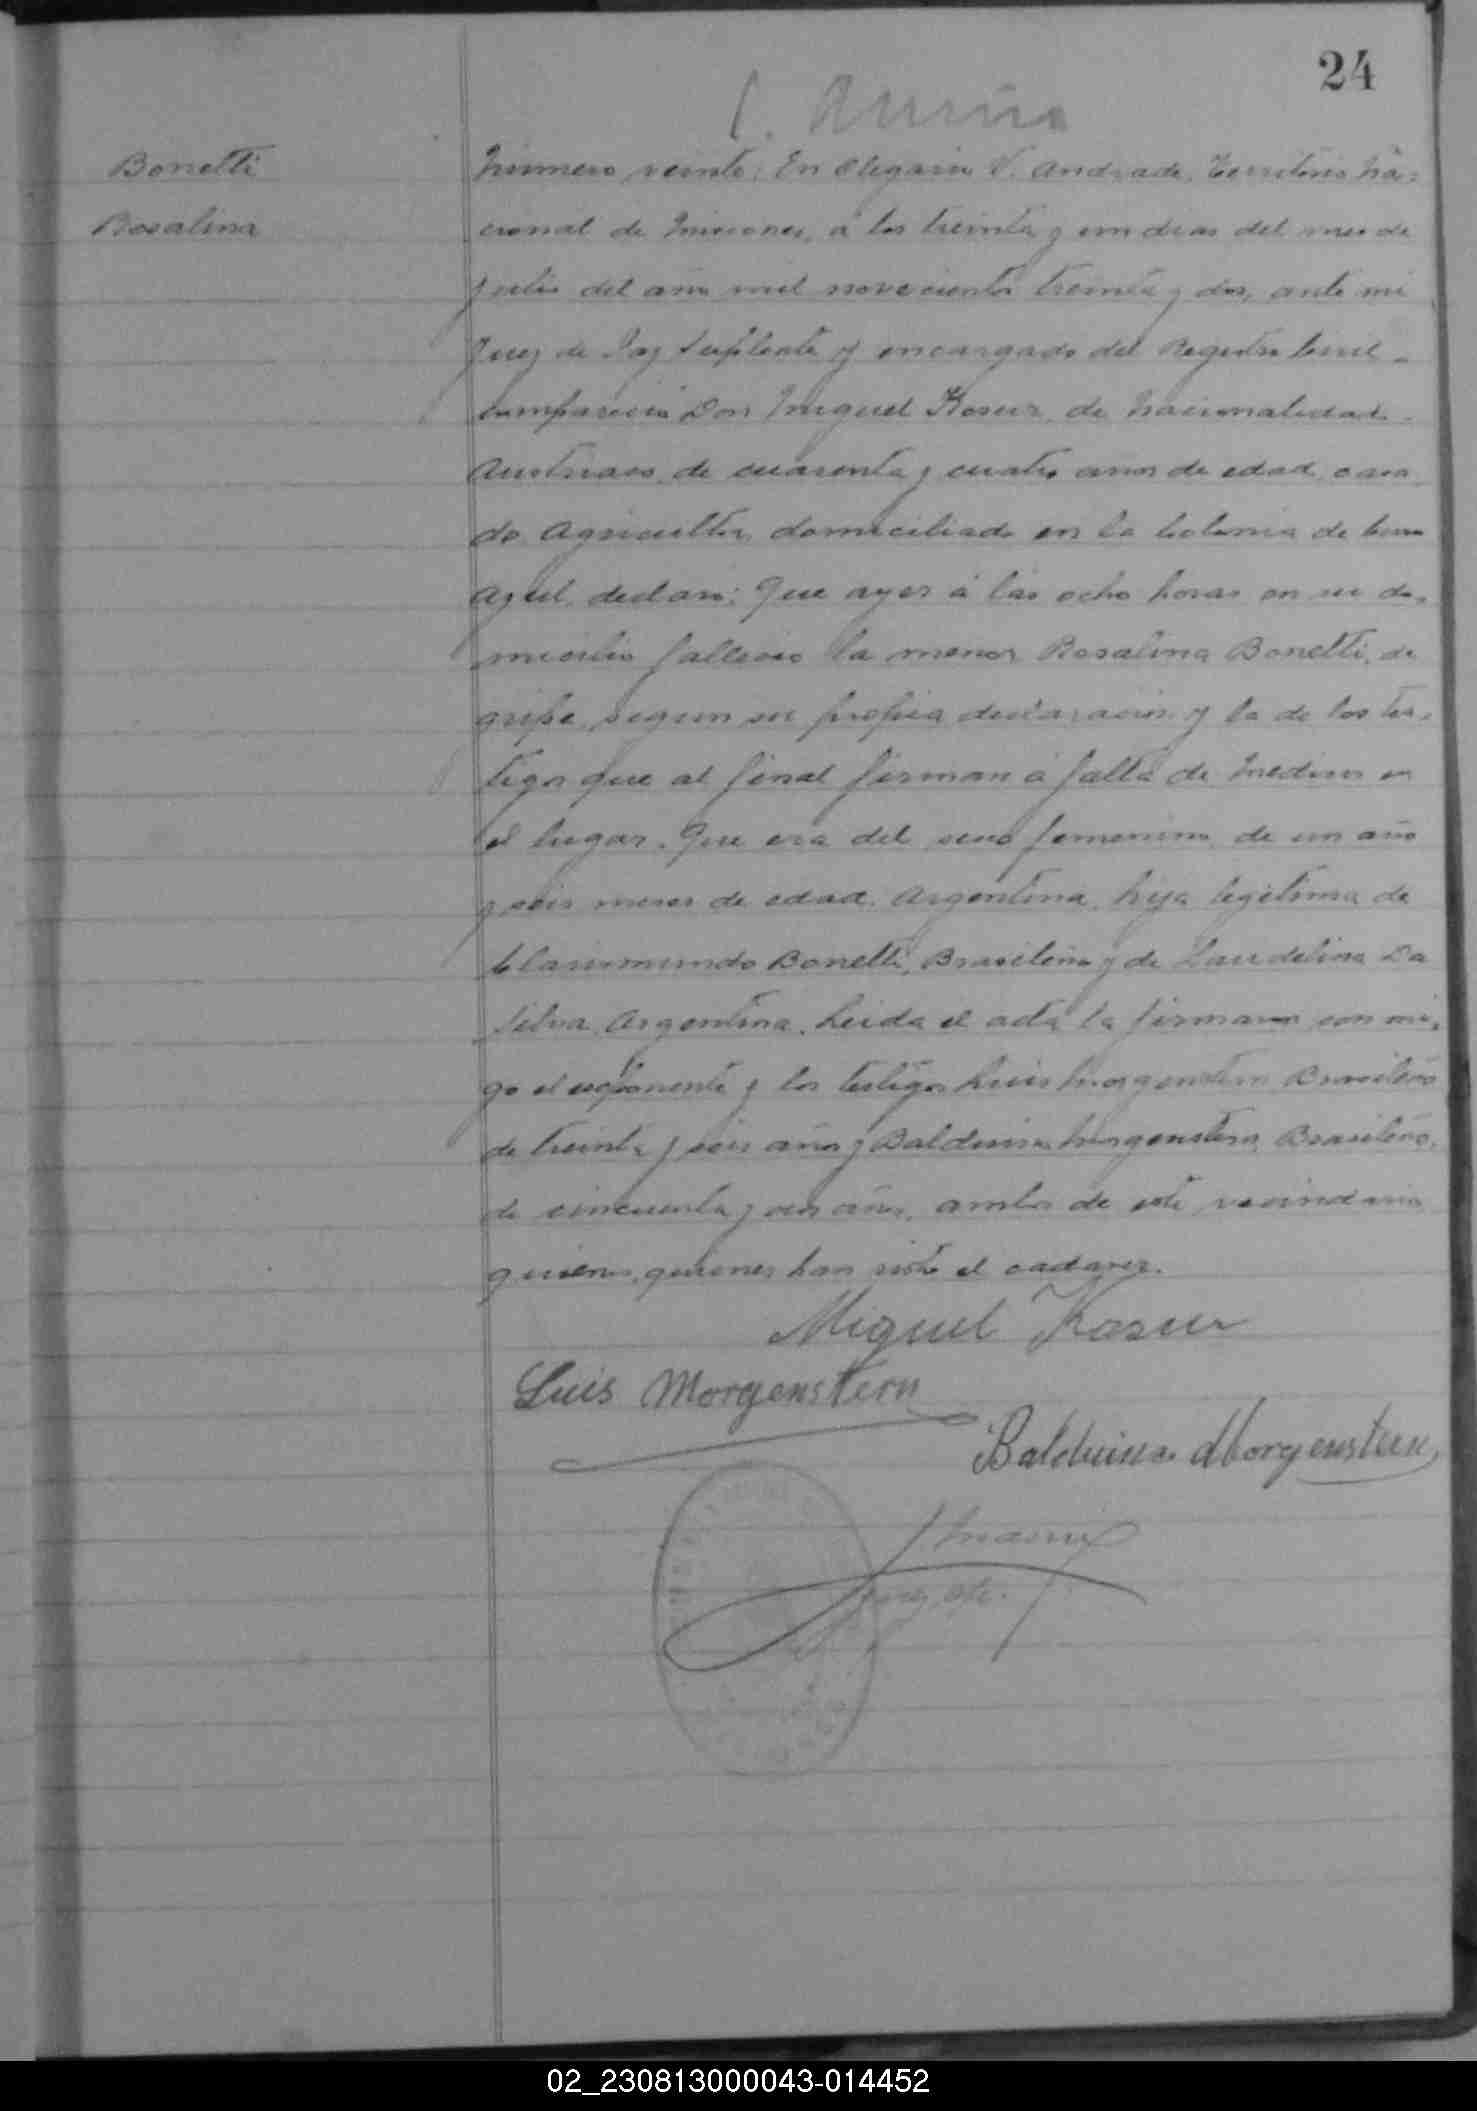 24
Bonetti
Rosalina
Número veinte: En Olegario V. Andrade, Territorio Na=
cional de Misiones, á los treinta y un dias del mes de
Julio del año mil novecientos treinta y dos, ante mi
Juez de Paz Suplente y encargado del Registro Civil
comparecio Don Miguel Kosur, de Nacionalidad
Austriaco, de cuarenta y cuatro años de edad, casa
do Agricultor, domiciliado en la Colonia de Cerro
Azul, declaró: Que ayer á las ocho horas en su do,
micilio fallecio la menor Rosalina Bonetti, de
gripe, segun su propia declaración y la de los tes,
tigos que al final firman á falta de Medicos en
el lugar. Que era del sexo femenino de un año
y seis meses de edad. Argentina, hija legitima de
Clarimundo Bonetti, Brasileño y de Laudelina Da
Silva, Argentina. Leida el acta la firmaron con mi,
go el exponente y los testigos Luis Morgenstern Brasileño
de treinta y seis años y Balduino Morgenstern, Brasileño,
de cincuenta y años, ambos de este vecindario
quienes, quienes han visto el cadaver.
Miguel Kosur
Luis Morgenstern
Balduino Morgenstern
Juez
02_230813000043-014452